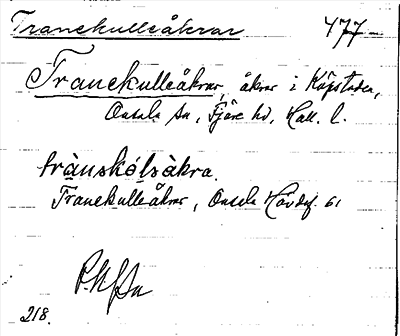 Tranekulleåkrar 477
Tranekulleåkrar, åkrar i Köpstaden,
Onsala sn, Fjäre hd, Hall. l.
trànskólsàkra.
Tranekulleåkrar, Onsala Hävdef. 61
218.